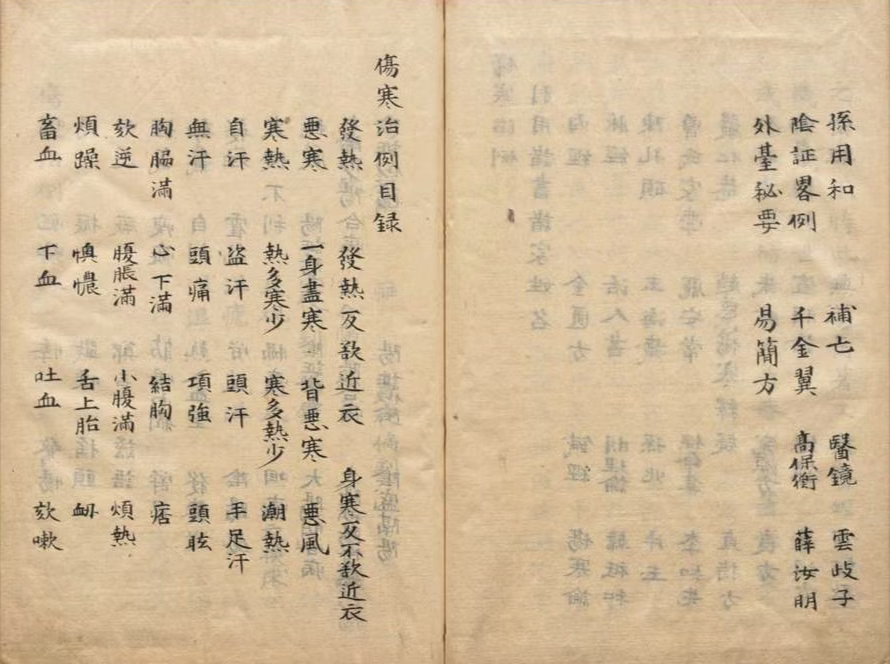 孫用和　補亡　醫鏡　雲歧子
陰証畧例　千金翼　高保衡　薛汝明
外臺秘要　易簡方
傷寒治例目録
發熱　發熱反欲近衣　身寒反不欲近衣
悪寒　一身盡寒　背悪寒　悪風
寒熱　熱多寒少　寒多熱少　潮熱
自汗　盗汗　頭汗　手足汗
無汗　頭痛　項強　頭眩
胸脇滿　心下滿　結胸　痞
欬逆　腹脹滿　小腹滿　煩熱
煩躁　懊憹　舌上胎　衂
畜血　下血　吐血　欬嗽